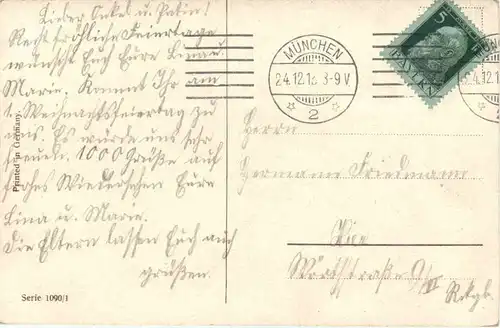 Lieber Onkel u. Patin!
Recht fröhliche Feiertage
wünscht Euch Eure Lina u.
Marie. Kommt Ihr am
1. Weihnachtsfeiertag zu
uns. Es würde uns sehr
freuen. 1000 Grüße auf
frohes Wiedersehen Eure
Lina u. Marie.
Die Eltern lassen Euch auch
grüßen.
Printed in Germany.
Serie 1090/1
MÜNCHEN
24.12.12. 8-9 V
2
5
BAYERN
MÜN
24.12.1
Herrn
Hermann Friedmann
Hier
Wörthstraße
Rckgb.